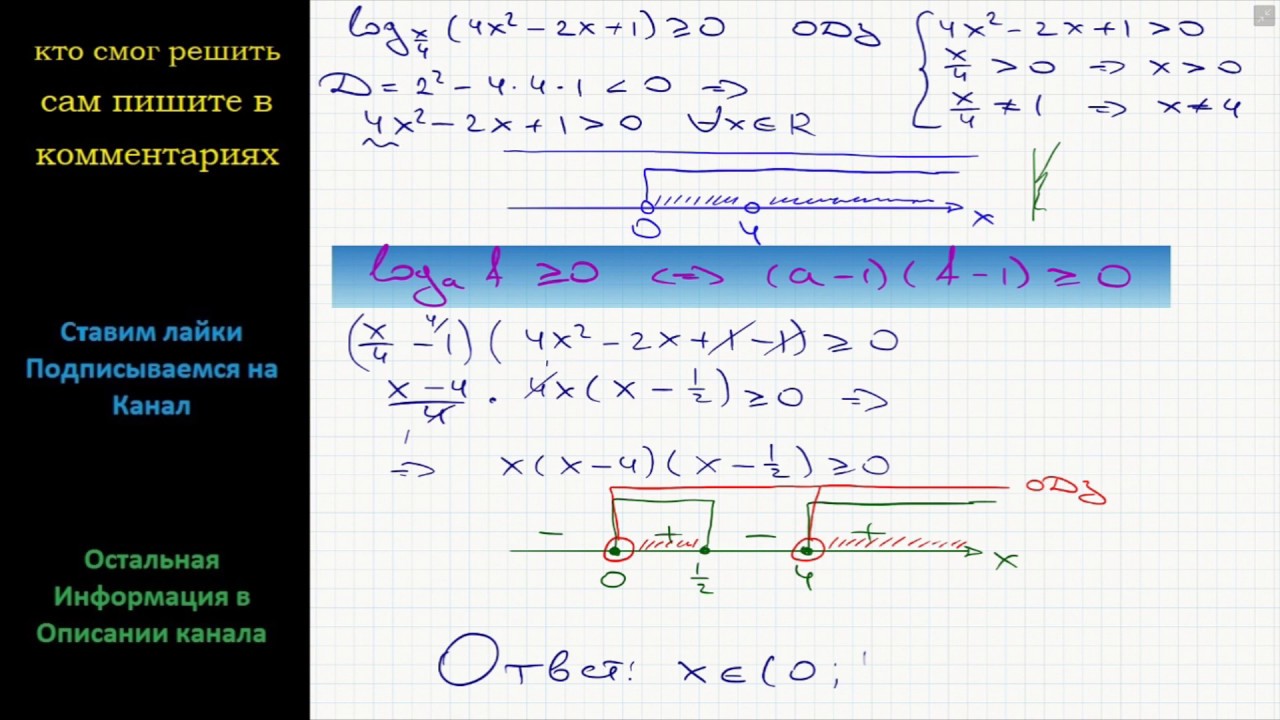 кто смог решить
сам пишите в
комментариях
Ставим лайки
Подписываемся на
Канал
Остальная
Информация в
Описании канала
log_{x/4} (4x² - 2x + 1) ≥ 0 ОДЗ { 4x² - 2x + 1 > 0
x/4 > 0 => x > 0
x/4 ≠ 1 => x ≠ 4
D = 2² - 4·4·1 < 0 =>
4x² - 2x + 1 > 0 ∀x ∈ R
0 4 x
log_a f ≥ 0 <=> (a - 1)(f - 1) ≥ 0
(x/4 - 1)(4x² - 2x + 1 - 1) ≥ 0
(x - 4)/4 · 4x(x - 1/2) ≥ 0 =>
=> x(x - 4)(x - 1/2) ≥ 0
ОДЗ
- + - +
0 1/2 4 x
Ответ: x ∈ (0;